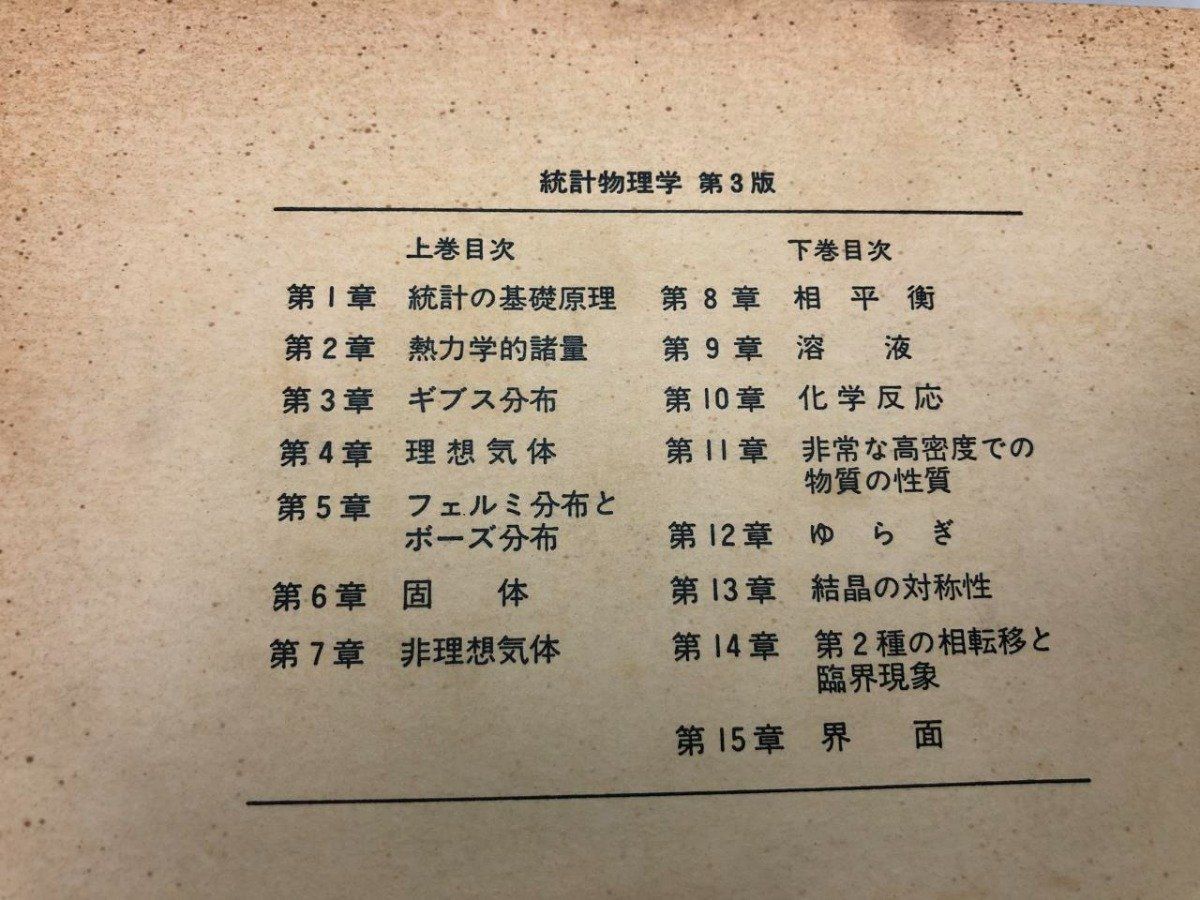 統計物理学 第3版
上巻目次
第1章 統計の基礎原理
第2章 熱力学的諸量
第3章 ギブス分布
第4章 理想気体
第5章 フェルミ分布と
ボーズ分布
第6章 固体
第7章 非理想気体
下巻目次
第8章 相平衡
第9章 溶液
第10章 化学反応
第11章 非常な高密度での
物質の性質
第12章 ゆらぎ
第13章 結晶の対称性
第14章 第2種の相転移と
臨界現象
第15章 界面